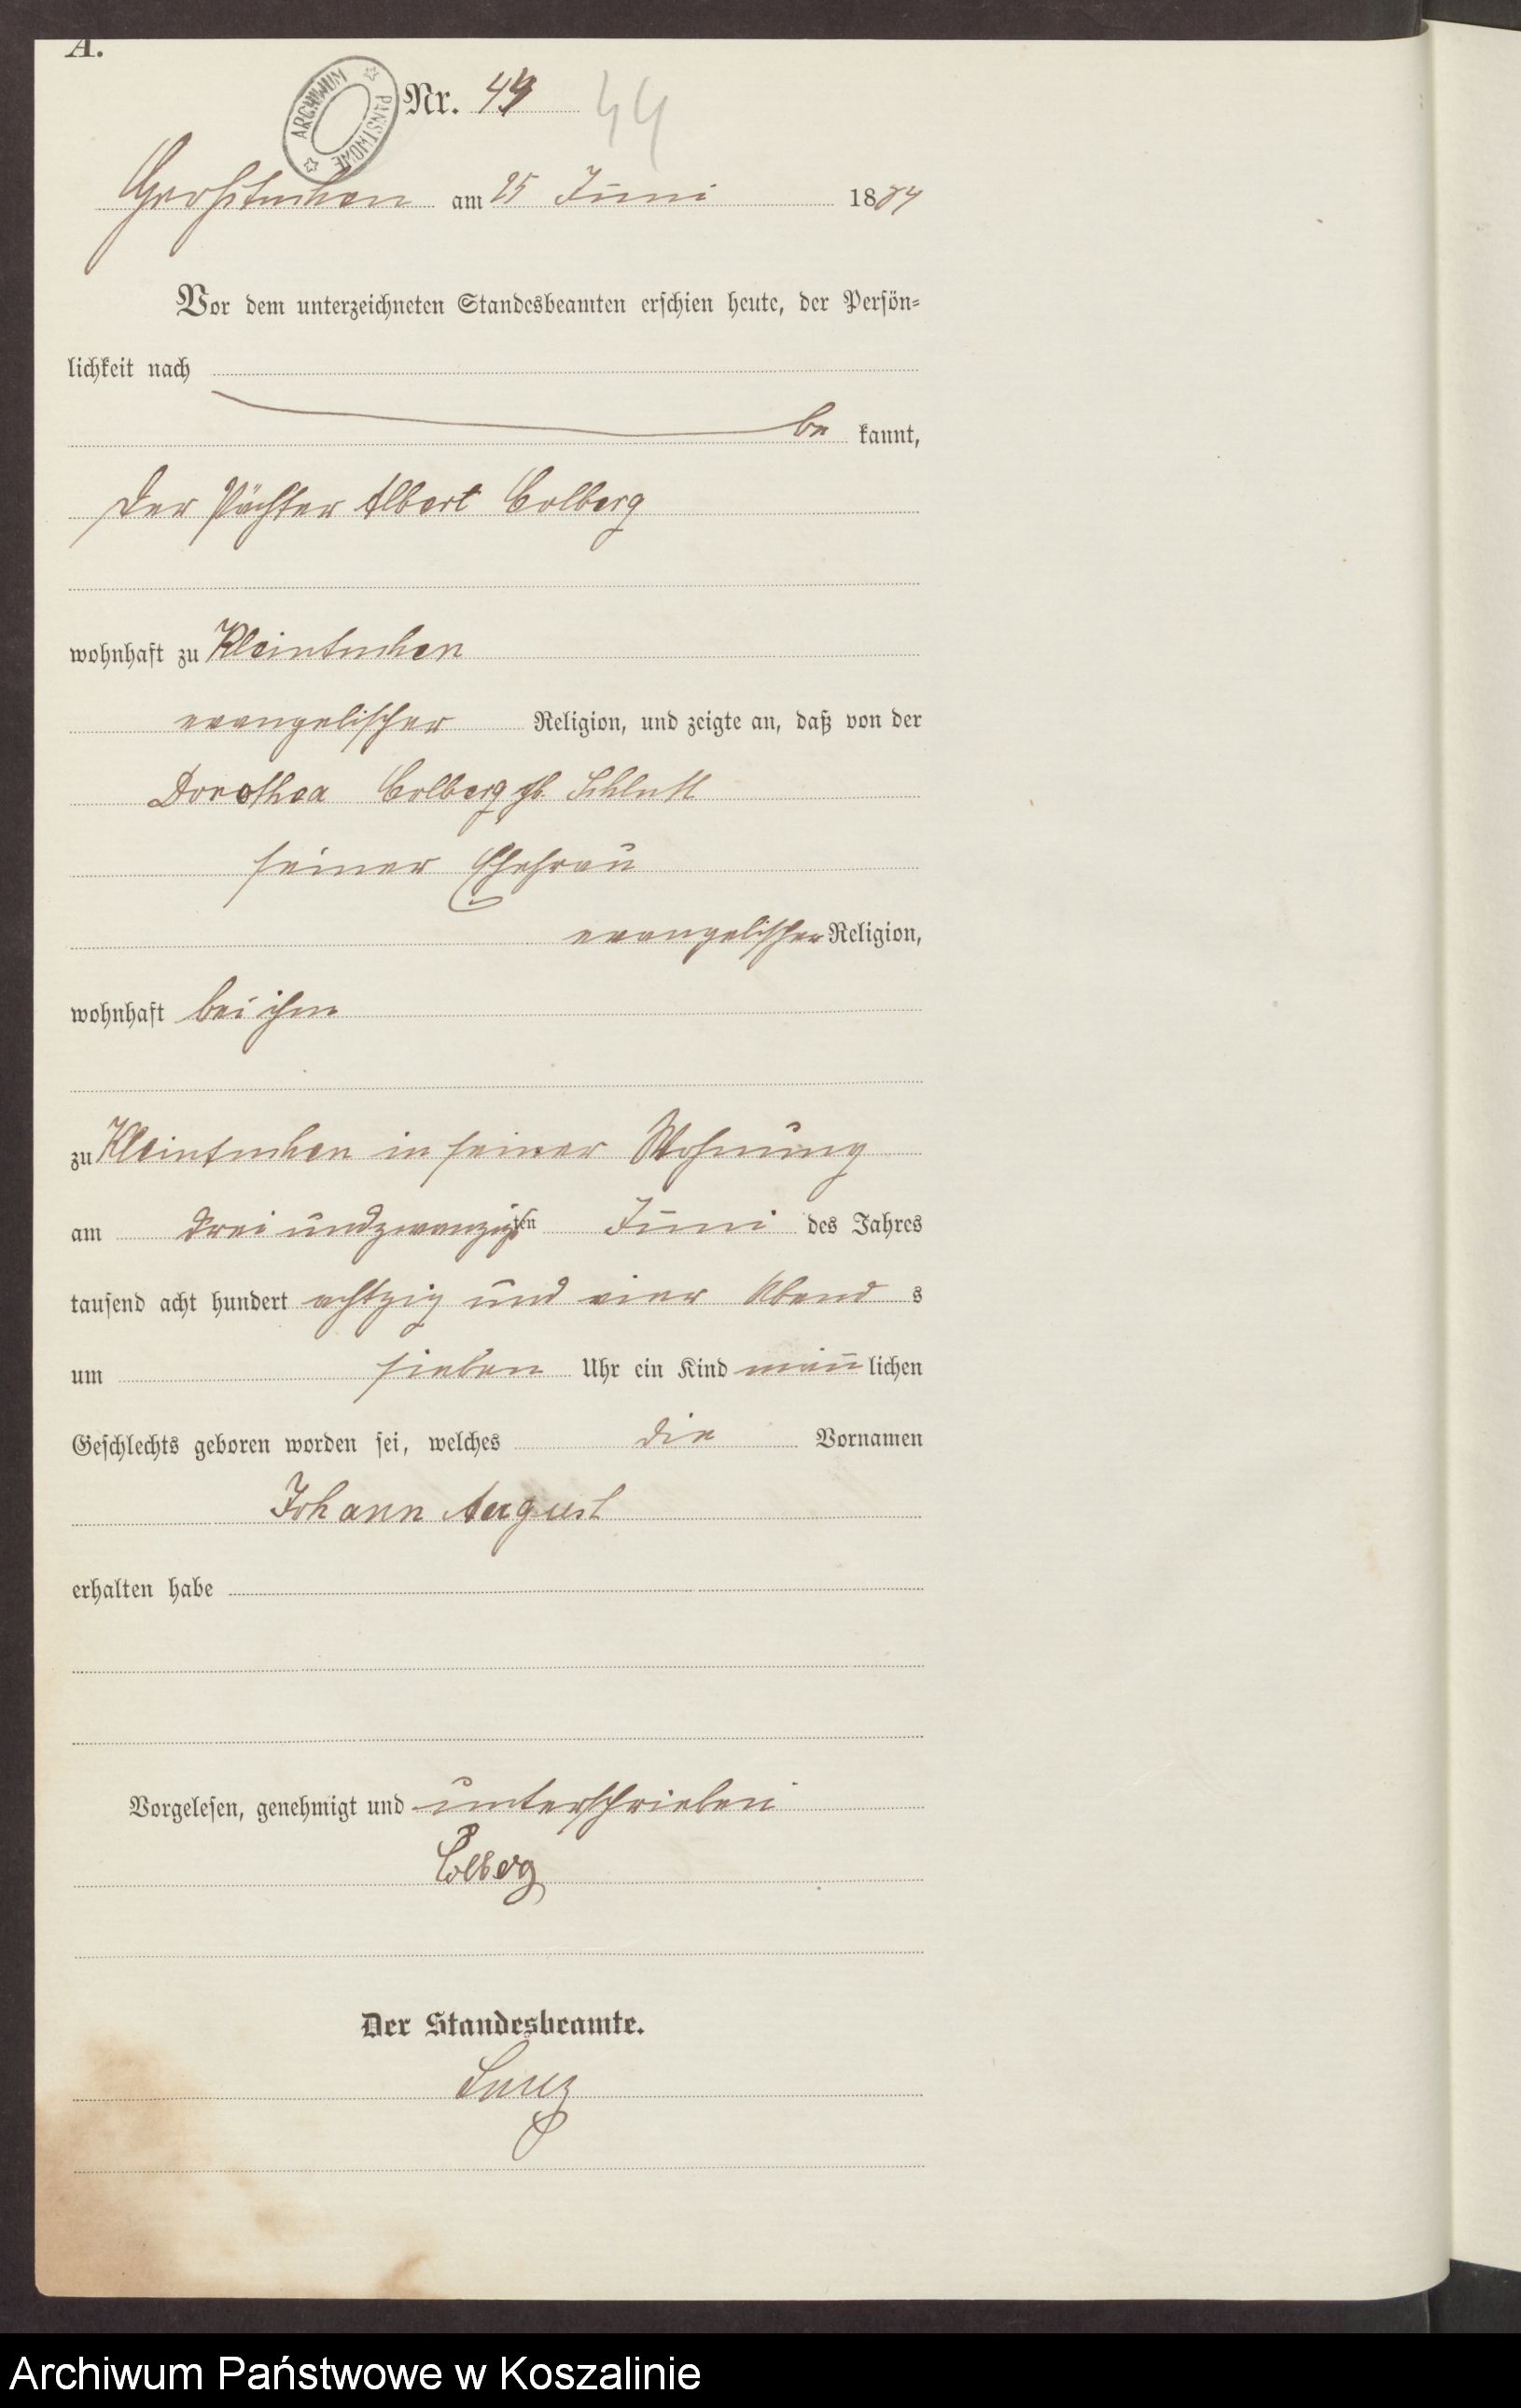 A.
ARCHIWUM PAŃSTWOWE
Nr. 49 44
Großtuchen am 25 Juni 1884
Vor dem unterzeichneten Standesbeamten erschien heute, der Persön-
lichkeit nach
be kannt,
der Pächter Albert Colberg
wohnhaft zu Kleintuchen
evangelischer Religion, und zeigte an, daß von der
Dorothea Colberg gb. Schlutt
seiner Ehefrau
evangelischer Religion,
wohnhaft bei ihm
zu Kleintuchen in seiner Wohnung
am drei und zwanzigsten Juni des Jahres
tausend acht hundert achtzig und vier Abend s
um sieben Uhr ein Kind män̄lichen
Geschlechts geboren worden sei, welches die Vornamen
Johann August
erhalten habe
Vorgelesen, genehmigt und unterschrieben
Colberg
Der Standesbeamte.
Archiwum Państwowe w Koszalinie